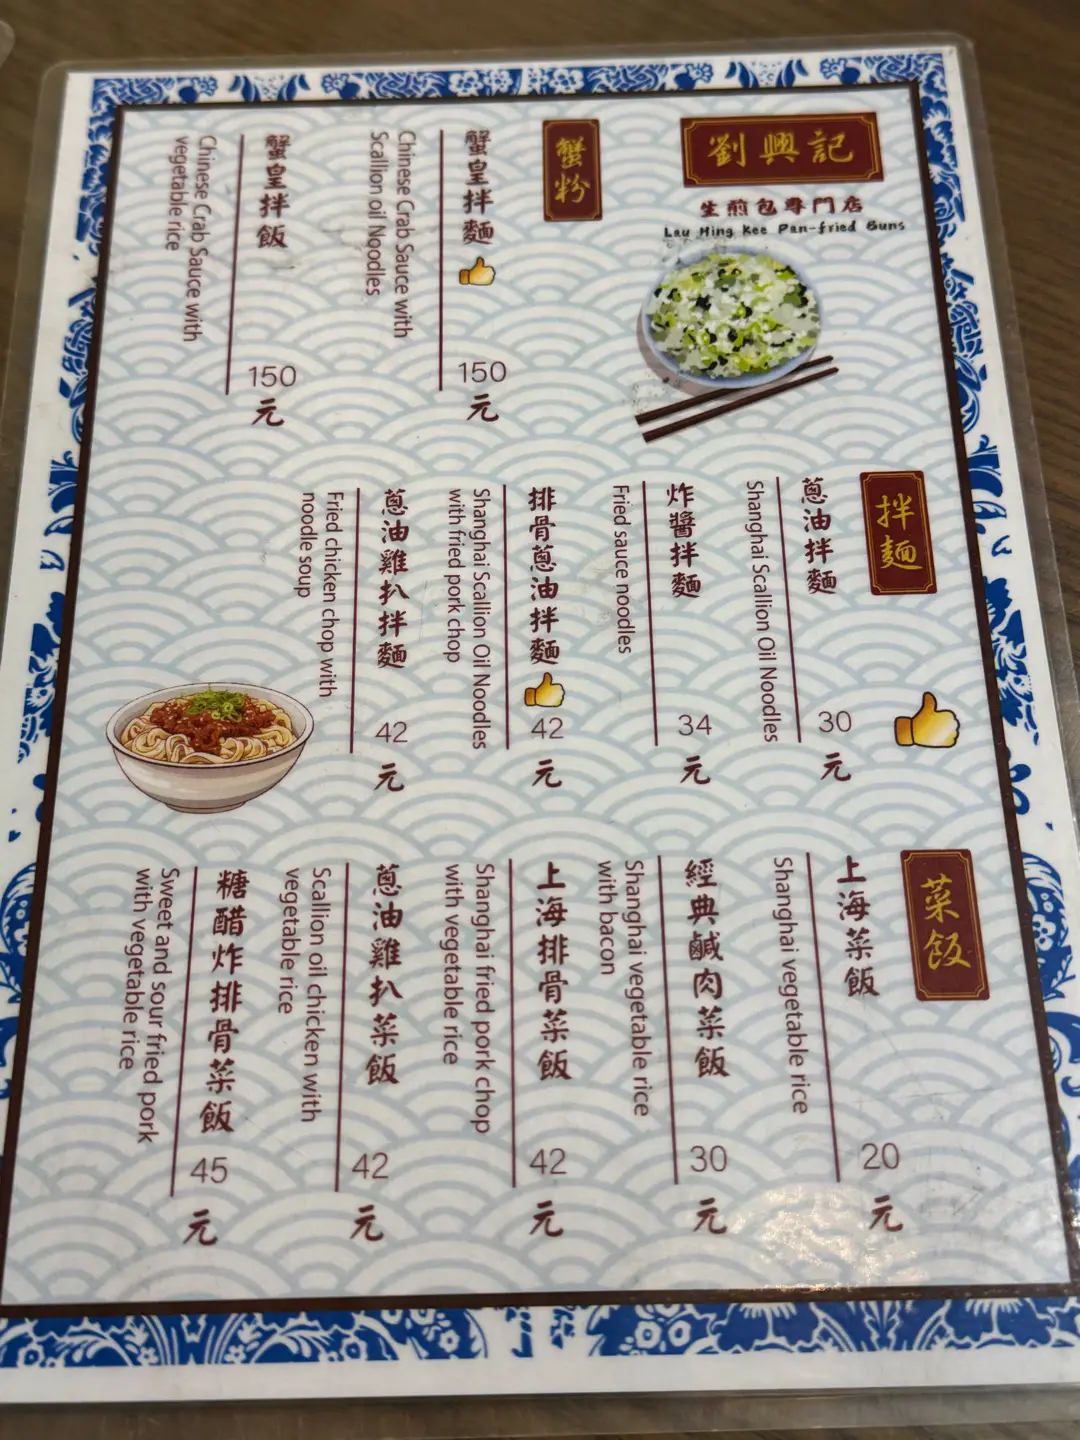 劉興記
生煎包專門店
Lau Hing Kee Pan-fried Buns
蟹粉
蟹皇拌麵
150
元
Chinese Crab Sauce with
Scallion oil Noodles
蟹皇拌飯
150
元
Chinese Crab Sauce with
vegetable rice
拌麵
蔥油拌麵
30
元
Shanghai Scallion Oil Noodles
炸醬拌麵
34
元
Fried sauce noodles
排骨蔥油拌麵
42
元
Shanghai Scallion Oil Noodles
with fried pork chop
蔥油雞扒拌麵
42
元
Fried chicken chop with
noodle soup
菜飯
上海菜飯
20
元
Shanghai vegetable rice
經典鹹肉菜飯
30
元
Shanghai vegetable rice
with bacon
上海排骨菜飯
42
元
Shanghai fried pork chop
with vegetable rice
蔥油雞扒菜飯
42
元
Scallion oil chicken with
vegetable rice
糖醋炸排骨菜飯
45
元
Sweet and sour fried pork
with vegetable rice